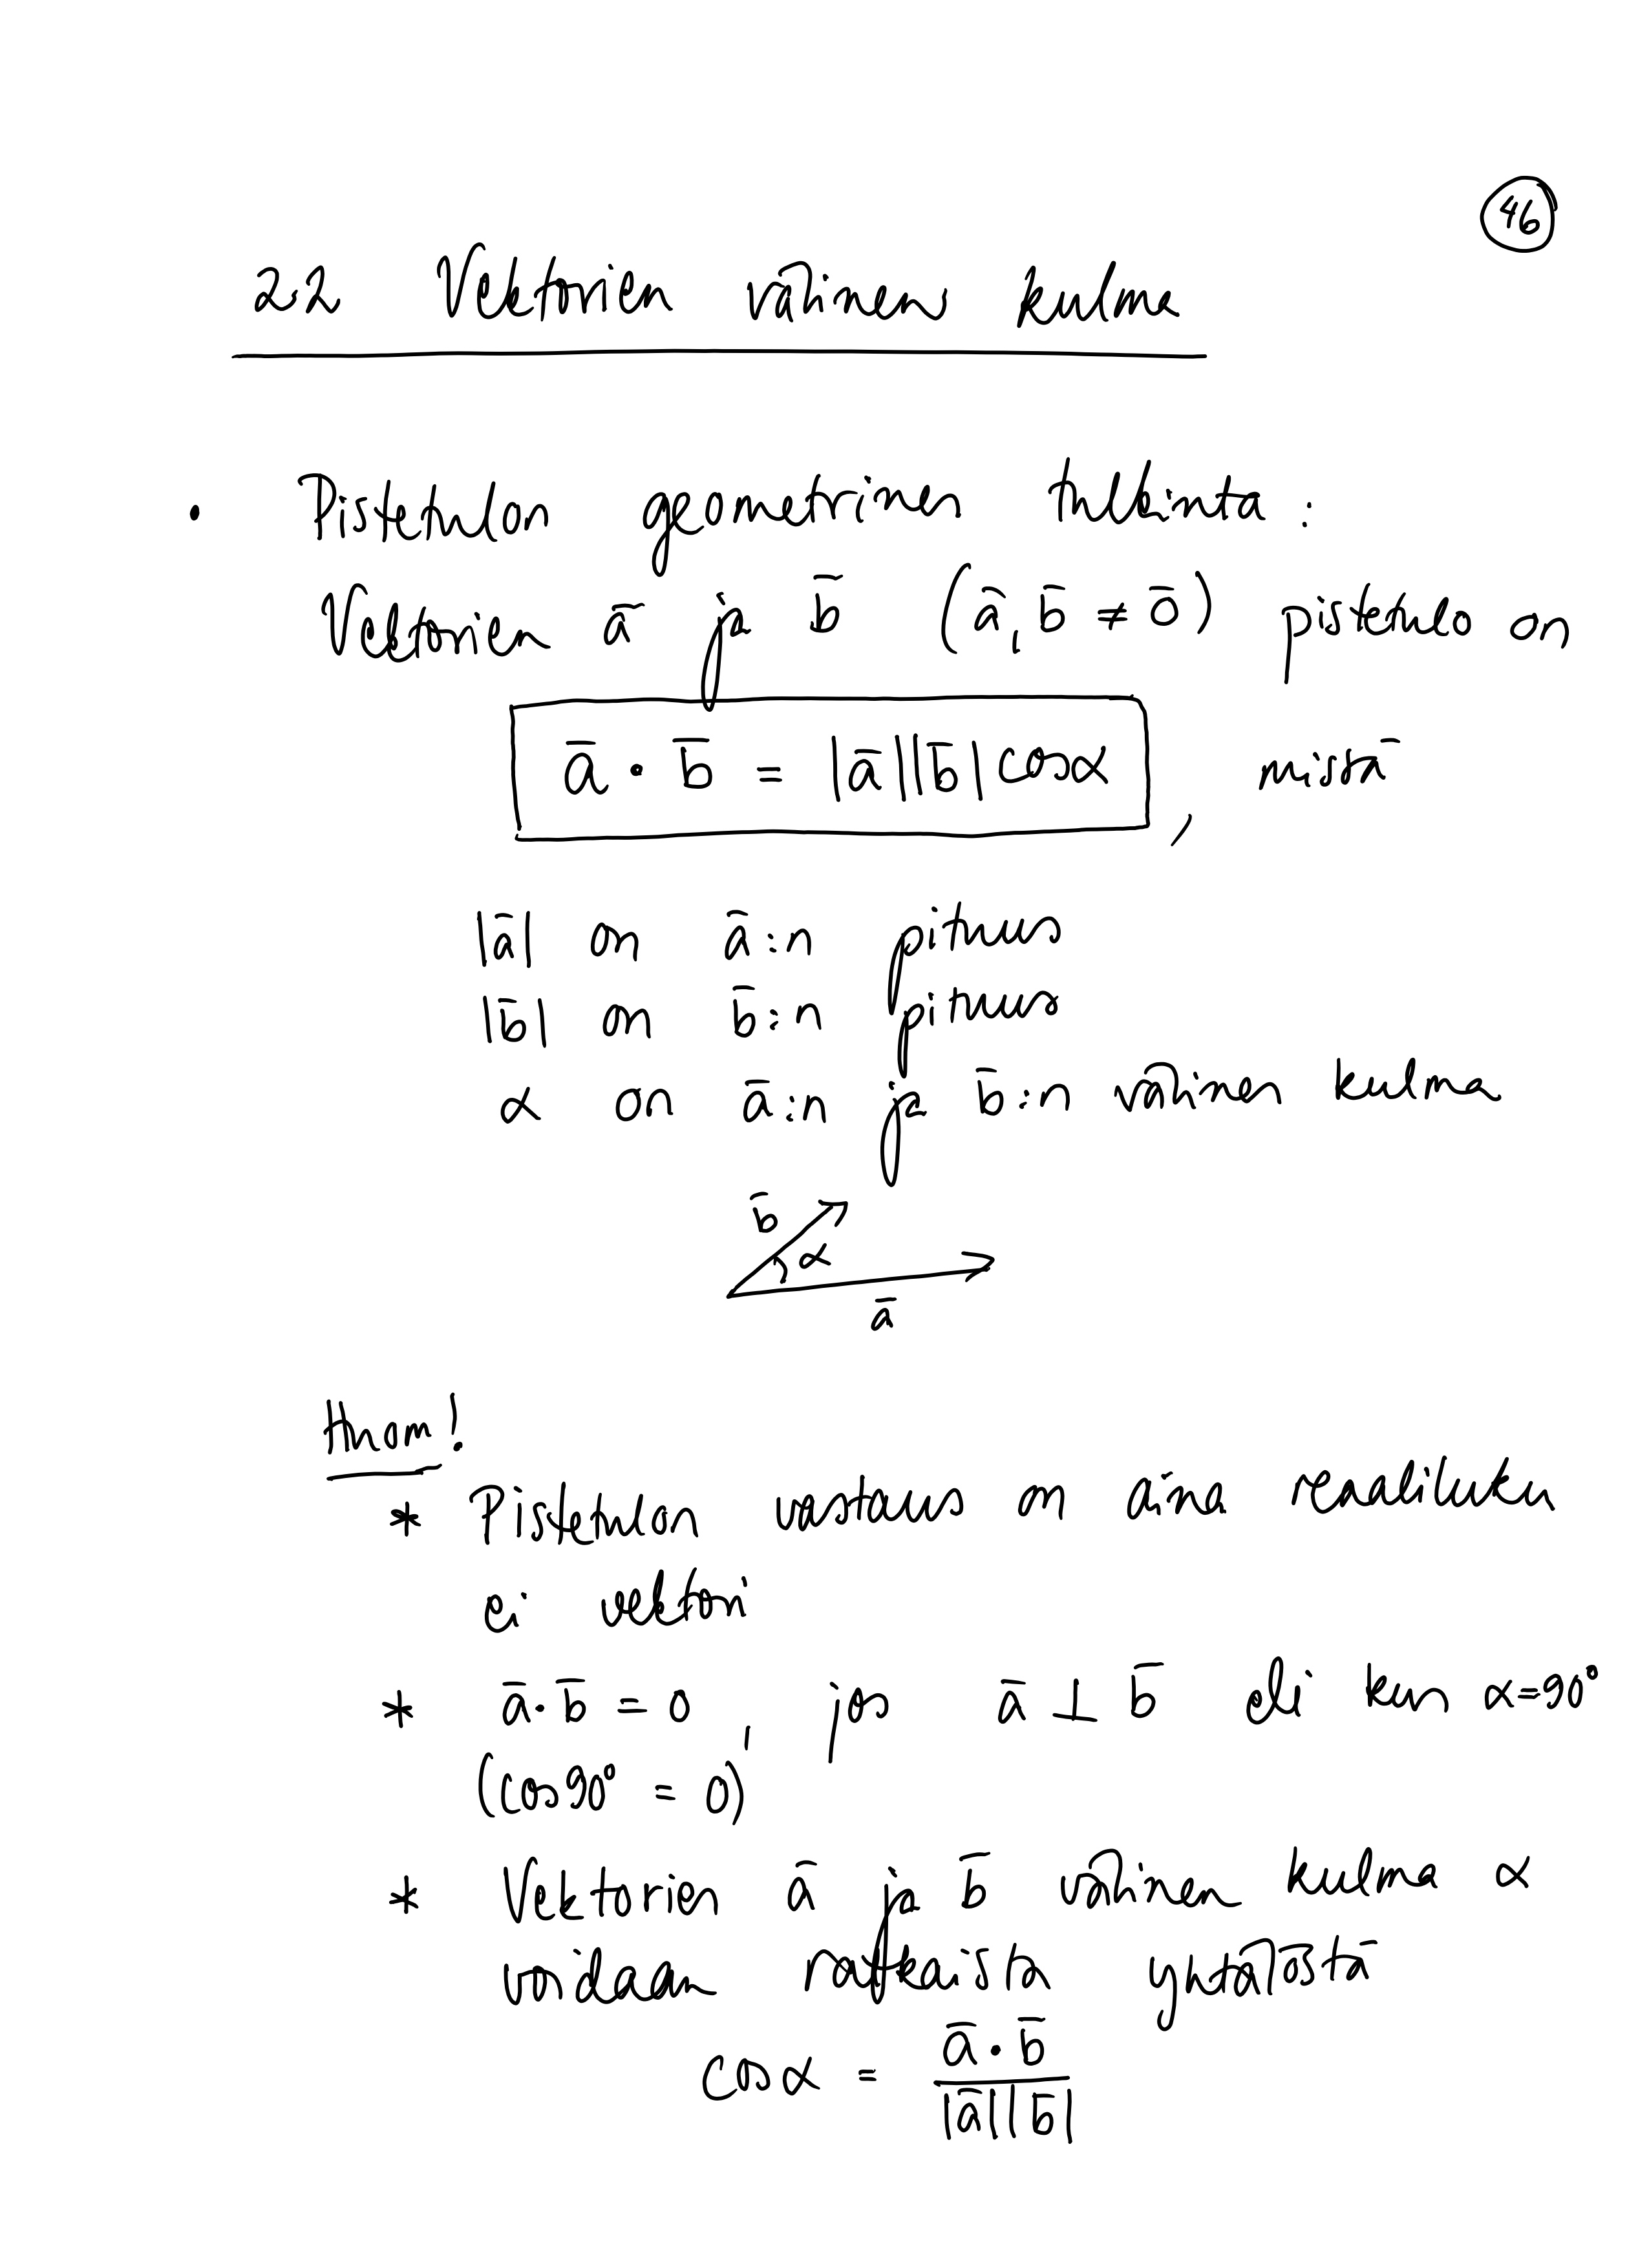 46
2.2 Vektorien välinen kulma
• Pistetulon geometrinen tulkinta:
Vektorien ā ja b̄ (ā, b̄ ≠ 0̄) pistetulo on
ā · b̄ = |ā||b̄| cosα, missä
|ā| on ā:n pituus
|b̄| on b̄:n pituus
α on ā:n ja b̄:n välinen kulma
b̄
α
ā
Huom!
* Pistetulon vastaus on aina reaaliluku
ei vektori
* ā·b̄ = 0, jos ā ⊥ b̄ eli kun α=90°
(cos90° = 0)
* Vektorien ā ja b̄ välinen kulma α
voidaan ratkaista yhtälöstä
cosα = ā · b̄ / |ā||b̄|